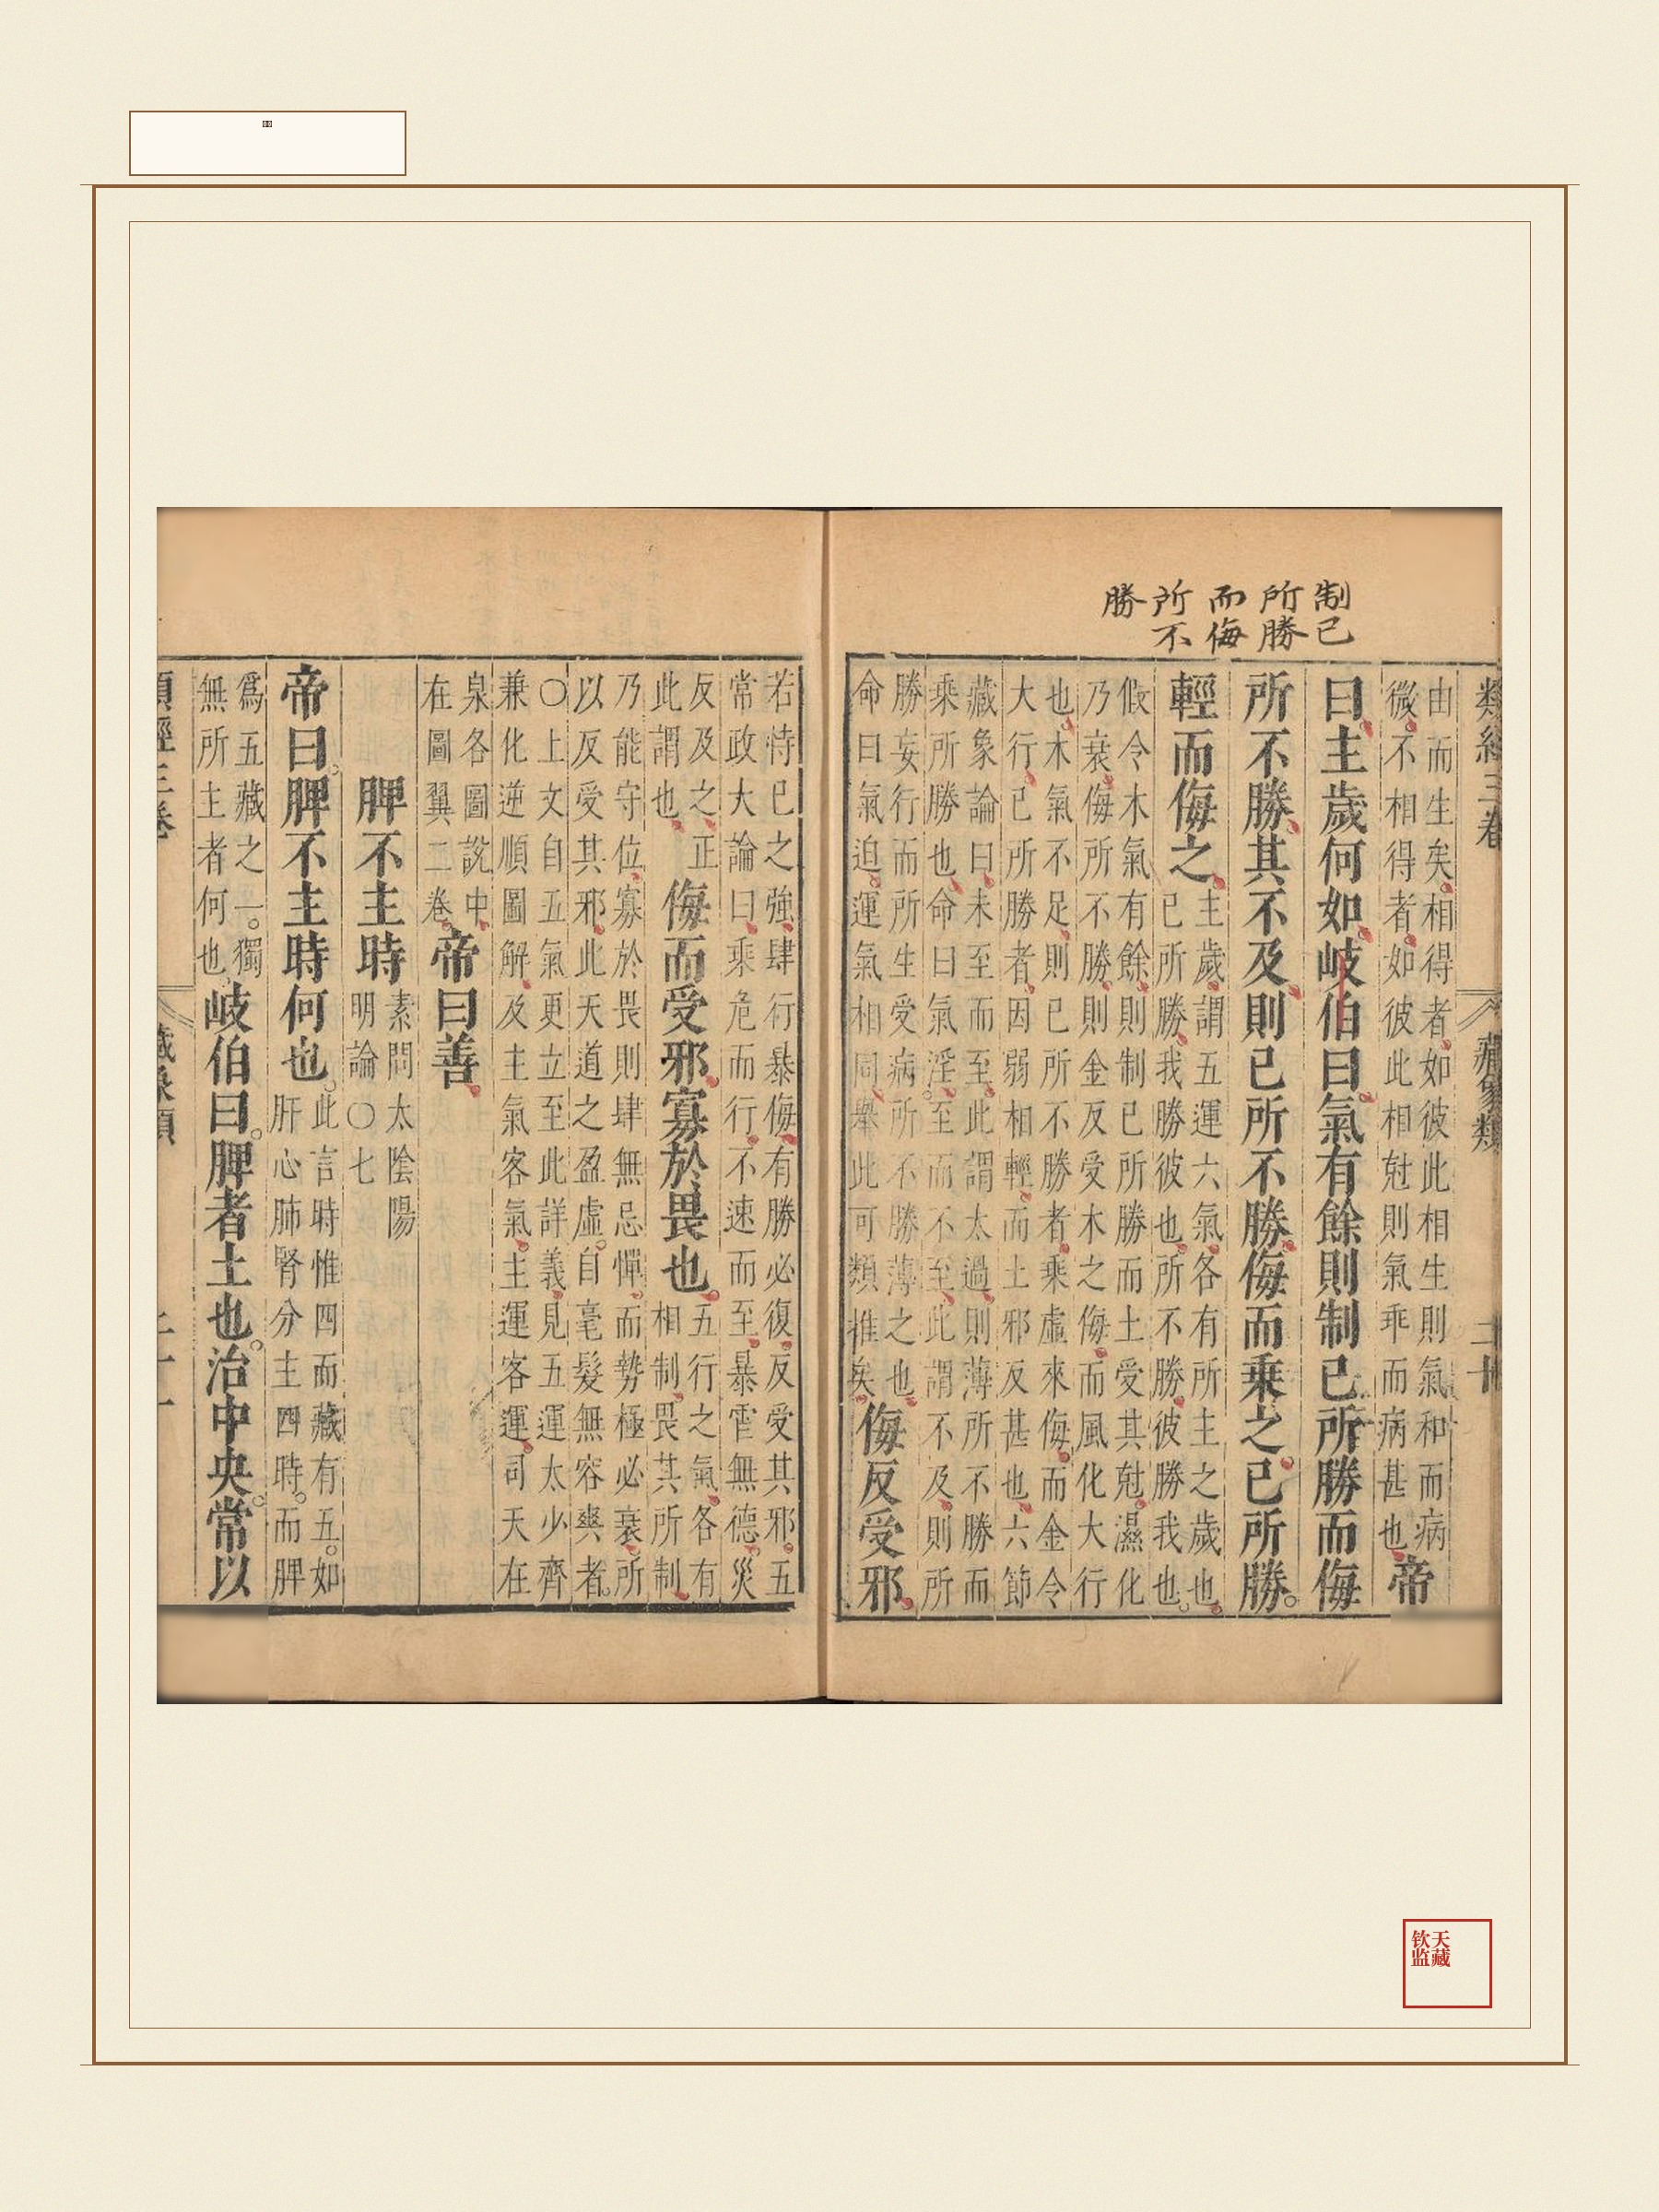 制己
所勝
而侮
所不
勝
類經三卷 藏象類 二十
由而生矣相得者如彼此相生則氣和而病
微不相得者如彼此相尅則氣乖而病甚也帝
曰主歲何如岐伯曰氣有餘則制已所勝而侮
所不勝其不及則已所不勝侮而乘之已所勝
輕而侮之
主歲謂五運六氣各有所主之歲也
已所勝我勝彼也所不勝彼勝我也
假令木氣有餘則制已所勝而土受其尅濕化
乃衰侮所不勝則金反受木之侮而風化大行
也木氣不足則已所不勝者乘虛來侮而金令
大行已所勝者因弱相輕而土邪反甚也六節
藏象論曰未至而至此謂太過則薄所不勝而
乘所勝也命曰氣淫至而不至此謂不及則所
勝妄行而所生受病所不勝薄之也
命曰氣迫運氣相同舉此可類推矣
侮反受邪
若恃已之強肆行暴侮有勝必復反受其邪五
常政大論曰乘危而行不速而至暴虐無德災
反及之正
此謂也
侮而受邪寡於畏也
五行之氣各有
相制畏其所制
乃能守位寡於畏則肆無忌憚而勢極必衰所
以反受其邪此天道之盈虛自毫髮無容爽者
〇上文自五氣更立至此詳義見五運太少齊
兼化逆順圖解及主氣客氣主運客運司天在
泉各圖說中
在圖翼二卷
帝曰善
脾不主時
素問太陰陽
明論〇七
帝曰脾不主時何也
此言時惟四而藏有五如
肝心肺腎分主四時而脾
爲五藏之一獨
無所主者何也
岐伯曰脾者土也治中央常以
類經三卷 藏象類 二十一
天藏
钦监